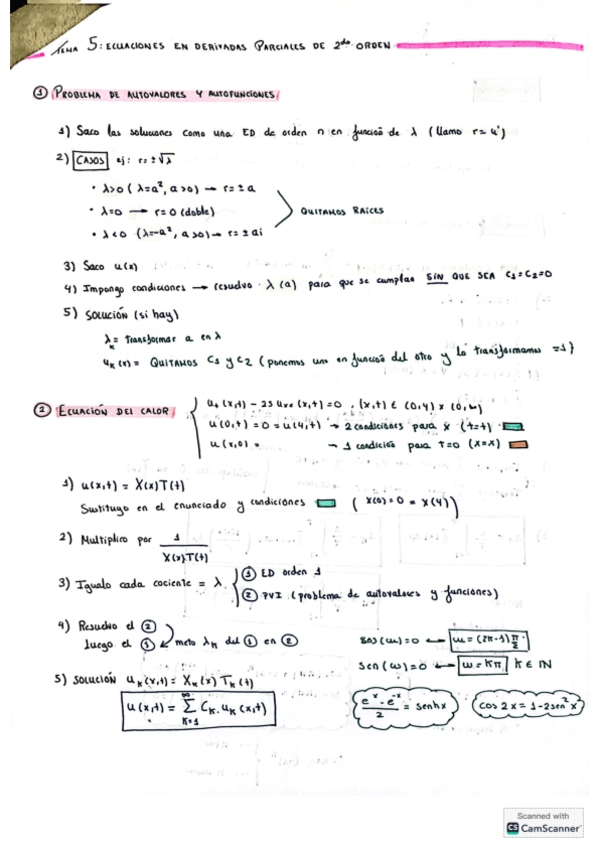 TEMA 5: ECUACIONES EN DERIVADAS PARCIALES DE 2do ORDEN
① PROBLEMA DE AUTOVALORES Y AUTOFUNCIONES
1) Saco las soluciones como una ED de orden n en función de λ (llamo r = u')
2) CASOS ej: r = ±√λ
• λ>0 (λ=a², a>0) → r = ± a
• λ=0 → r=0 (doble)
• λ<0 (λ=-a², a>0) → r = ± ai
QUITAMOS RAÍCES
3) Saco u(x)
4) Impongo condiciones → resuelvo λ(a) para que se cumplan SIN QUE SEA C₁=C₂=0
5) SOLUCIÓN (si hay)
λₖ = transformar a en λ
uₖ(x) = QUITAMOS C₁ y C₂ (ponemos uno en función del otro y lo transformamos =1)
② ECUACIÓN DEL CALOR
uₜ(x,t) - 25 uₓₓ(x,t) = 0, (x,t) ∈ (0,4) x (0,∞)
u(0,t) = 0 = u(4,t) → 2 condiciones para x (t=t)
u(x,0) = → 1 condición para t=0 (x=x)
1) u(x,t) = X(x)T(t)
Sustituyo en el enunciado y condiciones ( X(0) = 0 = X(4) )
2) Multiplico por 1/X(x)T(t)
3) Igualo cada cociente = λ
① ED orden 1
② PVI (problema de autovalores y funciones)
4) Resuelvo el ②
luego el ① meto λₖ del ① en ②
cos(w)=0 ← w = (2k-1)π/2
sen(w)=0 ← w = kπ k ∈ ℕ
5) SOLUCIÓN uₖ(x,t) = Xₖ(x) Tₖ(t)
u(x,t) = ∑ₖ₌₁^∞ Cₖ · uₖ(x,t)
(eˣ - e⁻ˣ)/2 = senhx
cos 2x = 1-2sen²x
Scanned with
CS CamScanner